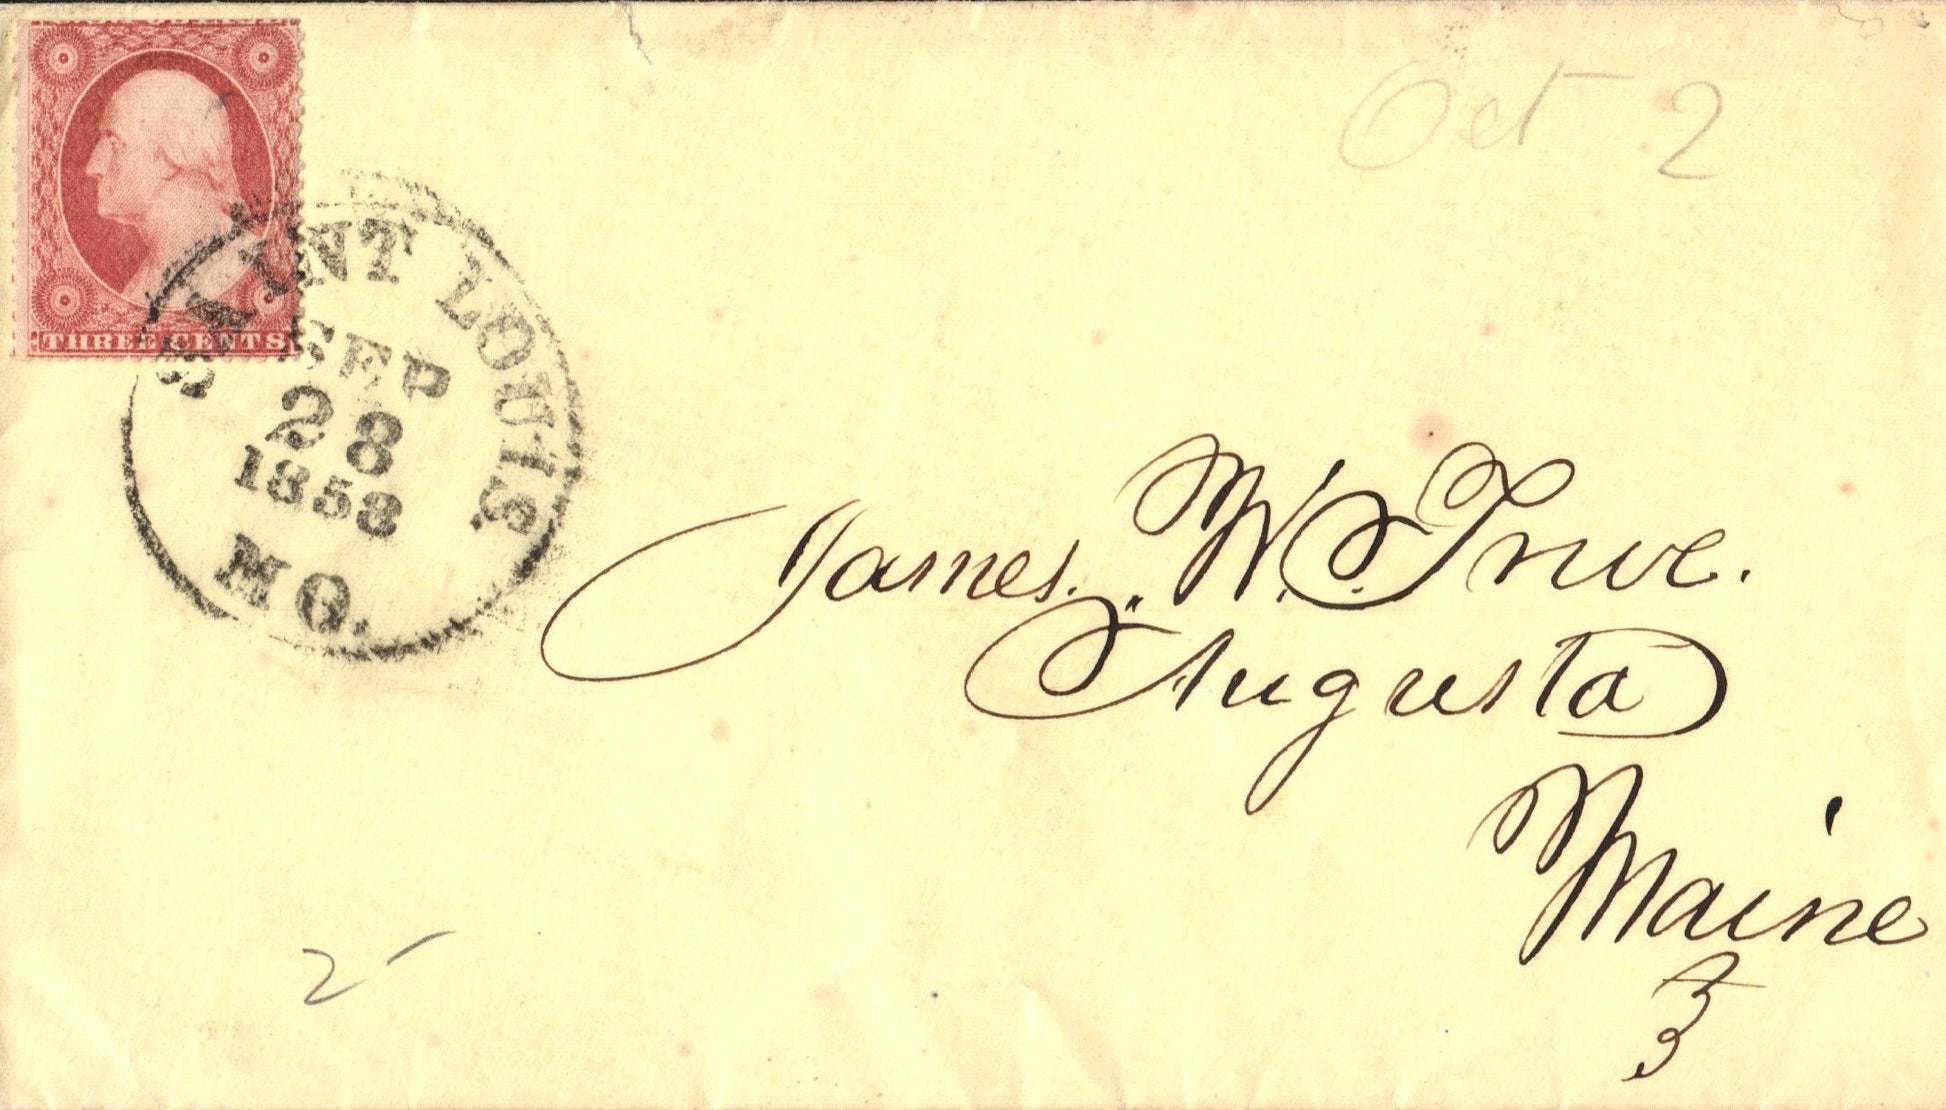 Oct 2
THREE CENTS
SAINT LOUIS
SEP
28
1858
MO.
James. W. True.
Augusta
Maine
3
2